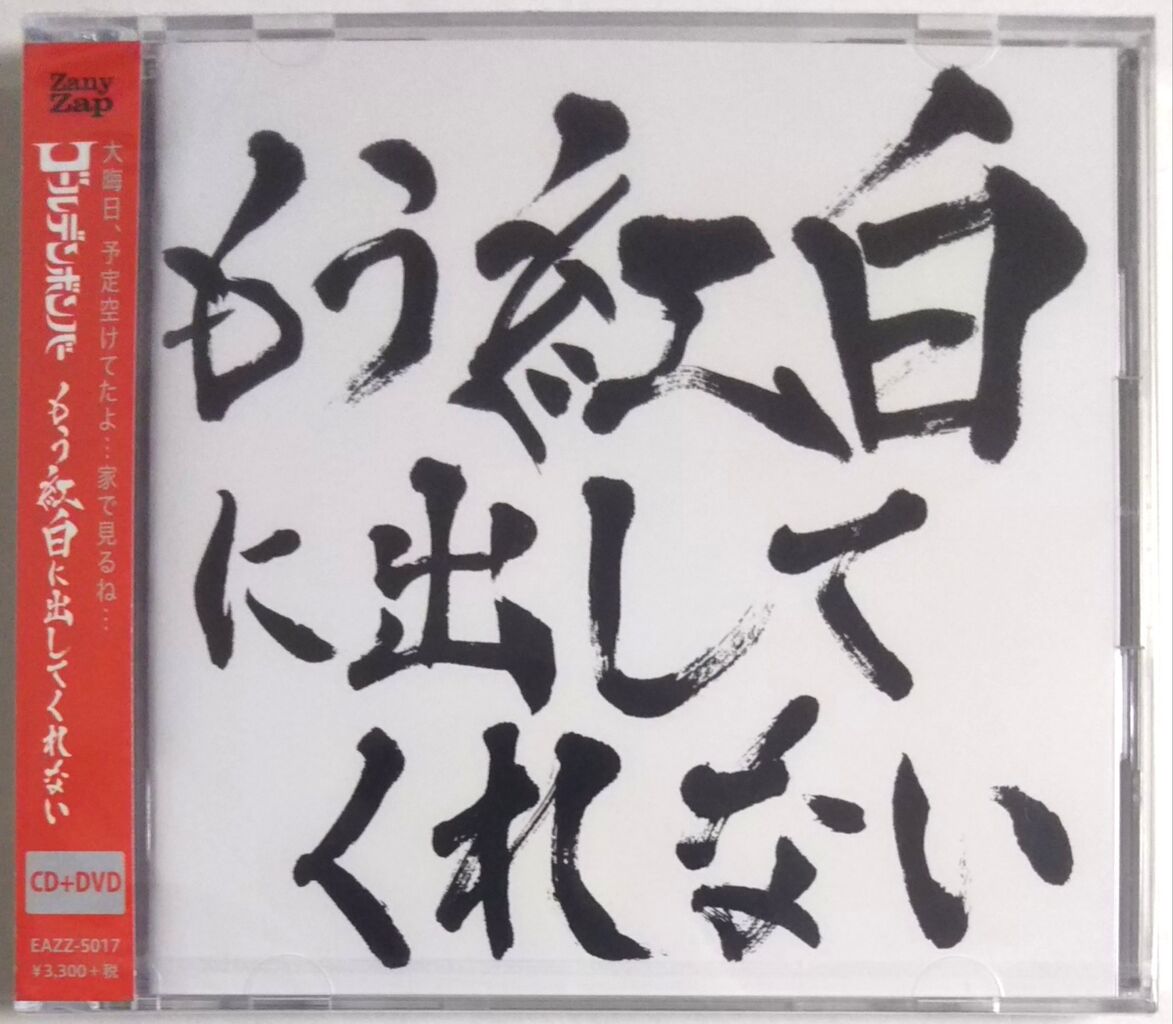 Zany
Zap
大晦日、予定空けてたよ…家で見るね…
ゴールデンボンバー
もう紅白に出してくれない
CD+DVD
EAZZ-5017
¥3,300+税
もう紅白
に出して
くれない